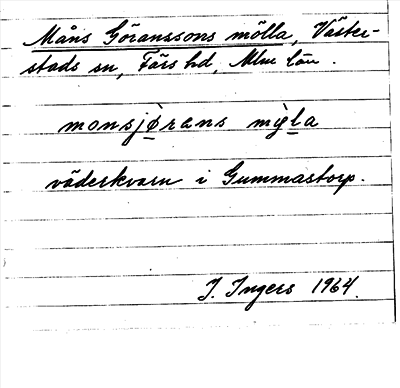 Måns Göranssons mölla, Väster-
stads sn, Färs hd, Mlm län.
monsjø̀rans mỳla
väderkvarn i Gummastorp.
J. Ingers 1964.